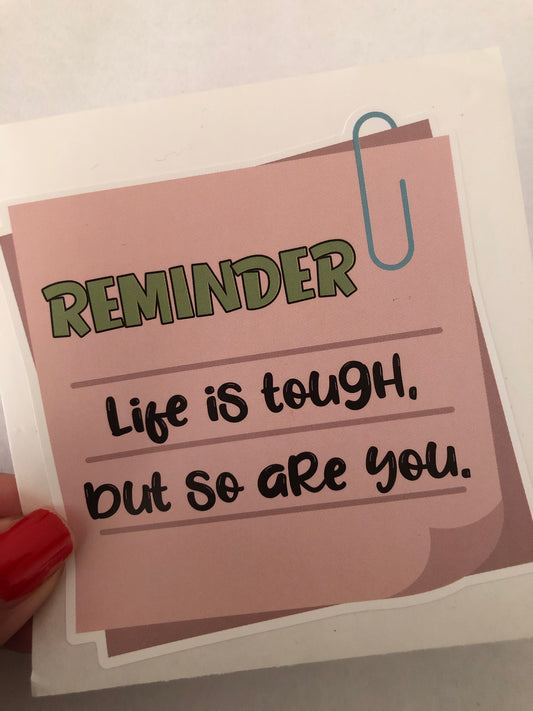 REMINDER
Life is tough,
but so are you.